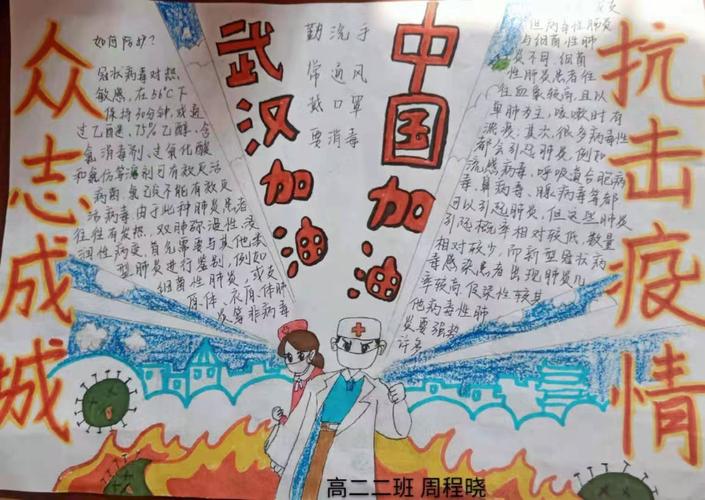 众志成城
如何防护？
冠状病毒对热
敏感，在56℃下
保持30分钟，或通
过乙醚，75%乙醇、含
氯消毒剂、过氧化酸
和氯仿等溶剂可有效灭活
病毒，氯己定不能有效灭
活病毒，由于此种肺炎患者
往往有发热，双肺弥漫性浸
润性病变，首先需要与其他类
型肺炎进行鉴别，例如
细菌性肺炎，或支
原体、衣原体肺
炎等非病毒
武汉加油
勤洗手
常通风
戴口罩
要消毒
中国加油
但病毒性肺炎
与细菌性肺
炎不同，细菌
性肺炎患者往
往血象较高，且以
单肺为主，咳嗽时有
浓痰，其次，很多病毒性
都会引起肺炎，例如
流感病毒，呼吸道合胞病
毒，鼻病毒、腺病毒等都
可以引起肺炎，但这些肺炎
引起概率相对较低，数量
相对较少，而新型冠状病
毒感染患者出现肺炎几
率较高，传染性较其
他病毒性肺
炎要强
许多
抗击疫情
高二二班 周程晓